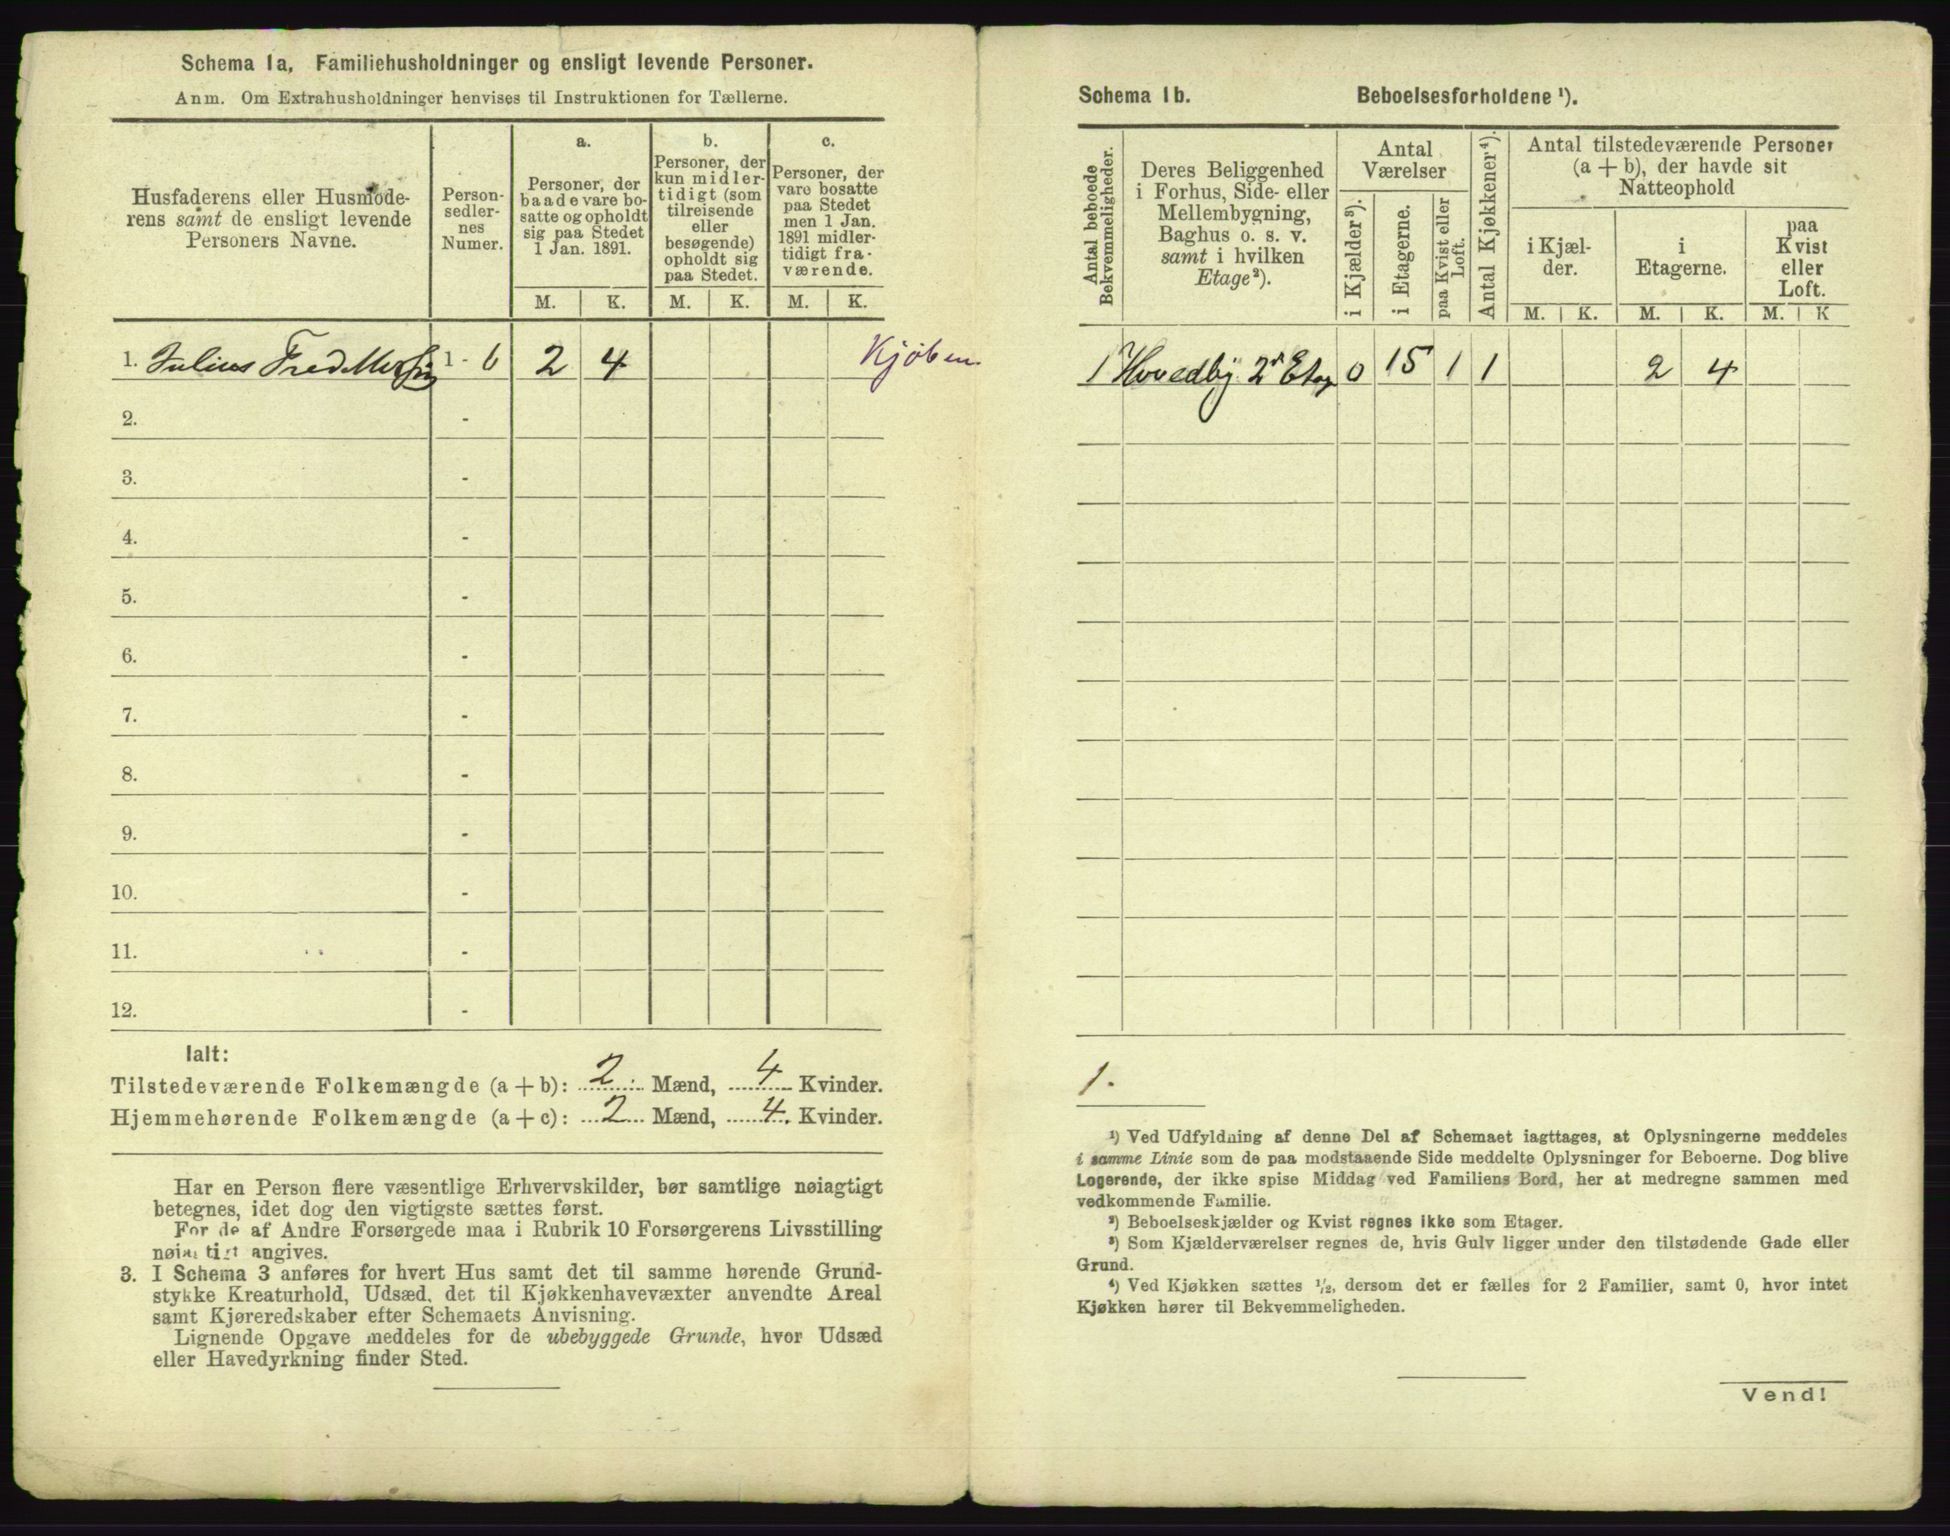 Schema 1a, Familiehusholdninger og ensligt levende Personer.
Anm. Om Extrahusholdninger henvises til Instruktionen for Tællerne.
Husfaderens eller Husmode-
rens samt de ensligt levende
Personers Navne.
Person-
sedler-
nes
Numer.
a.
Personer, der
baade vare bo-
satte og opholdt
sig paa Stedet
1 Jan. 1891.
b.
Personer, der
kun midler-
tidigt (som
tilreisende
eller
besøgende)
opholdt sig
paa Stedet.
c.
Personer, der
vare bosatte
paa Stedet
men 1 Jan.
1891 midler-
tidigt fra-
værende.
M. K. M. K. M. K.
1. Julius Fred 1 - 6 2 4 Kjøbm.
2. -
3. -
4. -
5. -
6. -
7. -
8. -
9. -
10. -
11. -
12. -
Ialt:
Tilstedeværende Folkemængde (a + b): 2 Mænd, 4 Kvinder.
Hjemmehørende Folkemængde (a + c): 2 Mænd, 4 Kvinder.
Har en Person flere væsentlige Erhvervskilder, bør samtlige nøiagtigt
betegnes, idet dog den vigtigste sættes først.
For de af Andre Forsørgede maa i Rubrik 10 Forsørgerens Livsstilling
nøiagtigt angives.
3. I Schema 3 anføres for hvert Hus samt det til samme hørende Grund-
stykke Kreaturhold, Udsæd, det til Kjøkkenhavevæxter anvendte Areal
samt Kjøreredskaber efter Schemaets Anvisning.
Lignende Opgave meddeles for de ubebyggede Grunde, hvor Udsæd
eller Havedyrkning finder Sted.
Schema 1b. Beboelsesforholdene ¹).
Antal beboede
Bekvemmeligheder.
Deres Beliggenhed
i Forhus, Side- eller
Mellembygning,
Baghus o. s. v.
samt i hvilken
Etage²).
Antal
Værelser
i Kjælder³).
i Etagerne.
paa Kvist eller
Loft.
Antal Kjøkkener⁴).
Antal tilstedeværende Personer
(a + b), der havde sit
Natteophold
i Kjæl-
der.
i
Etagerne.
paa
Kvist
eller
Loft.
M. K. M. K. M. K
1 Hovedby. 2' Etag 0 15 1 1 2 4
1.
¹) Ved Udfyldning af denne Del af Schemaet iagttages, at Oplysningerne meddeles
i samme Linie som de paa modstaaende Side meddelte Oplysninger for Beboerne. Dog blive
Logerende, der ikke spise Middag ved Familiens Bord, her at medregne sammen med
vedkommende Familie.
²) Beboelseskjælder og Kvist regnes ikke som Etager.
³) Som Kjælderværelser regnes de, hvis Gulv ligger under den tilstødende Gade eller
Grund.
⁴) Ved Kjøkken sættes ½, dersom det er fælles for 2 Familier, samt 0, hvor intet
Kjøkken hører til Bekvemmeligheden.
Vend!